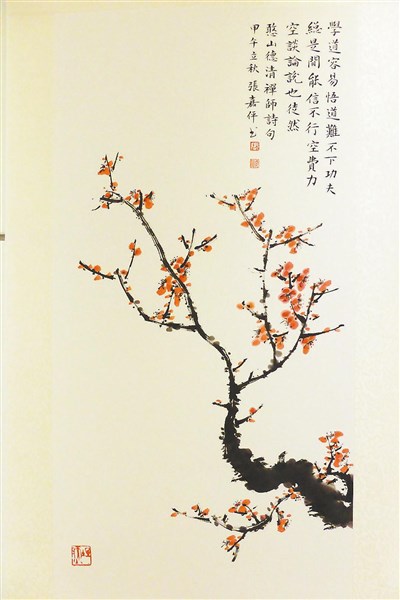 學道容易悟道難不下功夫
總是閒能信不行空費力
空談論說也徒然
憨山德清禪師詩句
甲午立秋 張嘉